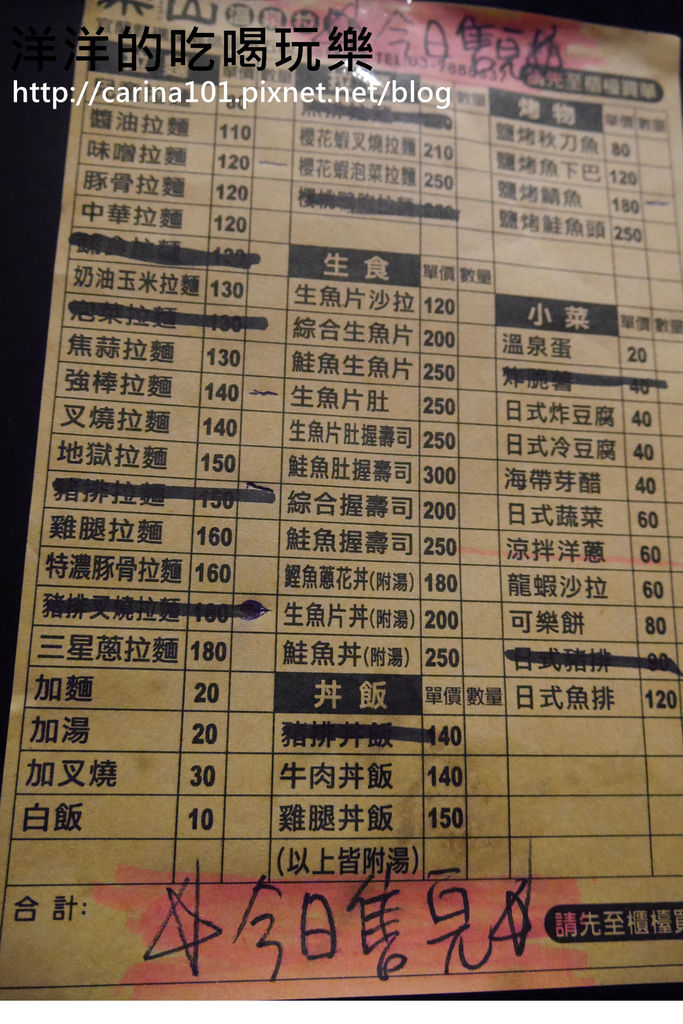 洋洋的吃喝玩樂
http://carina101.pixnet.net/blog
今日售完
請先至櫃檯買單
單價 數量
醬油拉麵 110
味噌拉麵 120
豚骨拉麵 120
中華拉麵 120
120
奶油玉米拉麵 130
泡菜拉麵 130
焦蒜拉麵 130
強棒拉麵 140
叉燒拉麵 140
地獄拉麵 150
豬排拉麵 150
雞腿拉麵 160
特濃豚骨拉麵 160
豬排叉燒拉麵 160
三星蔥拉麵 180
加麵 20
加湯 20
加叉燒 30
白飯 10
數量
櫻花蝦叉燒拉麵 210
櫻花蝦泡菜拉麵 250
生食 單價 數量
生魚片沙拉 120
綜合生魚片 200
鮭魚生魚片 250
生魚片肚 250
生魚片肚握壽司 250
鮭魚肚握壽司 300
綜合握壽司 200
鮭魚握壽司 250
鰹魚蔥花丼(附湯) 180
生魚片丼(附湯) 200
鮭魚丼(附湯) 250
丼飯 單價 數量
豬排丼飯 140
牛肉丼飯 140
雞腿丼飯 150
(以上皆附湯)
烤物 單價 數量
鹽烤秋刀魚 80
鹽烤魚下巴 120
鹽烤鯖魚 180
鹽烤鮭魚頭 250
小菜 單價 數量
溫泉蛋 20
炸脆薯 40
日式炸豆腐 40
日式冷豆腐 40
海帶芽醋 40
日式蔬菜 60
涼拌洋蔥 60
龍蝦沙拉 60
可樂餅 80
日式豬排 90
日式魚排 120
合計:
今日售完
請先至櫃檯買